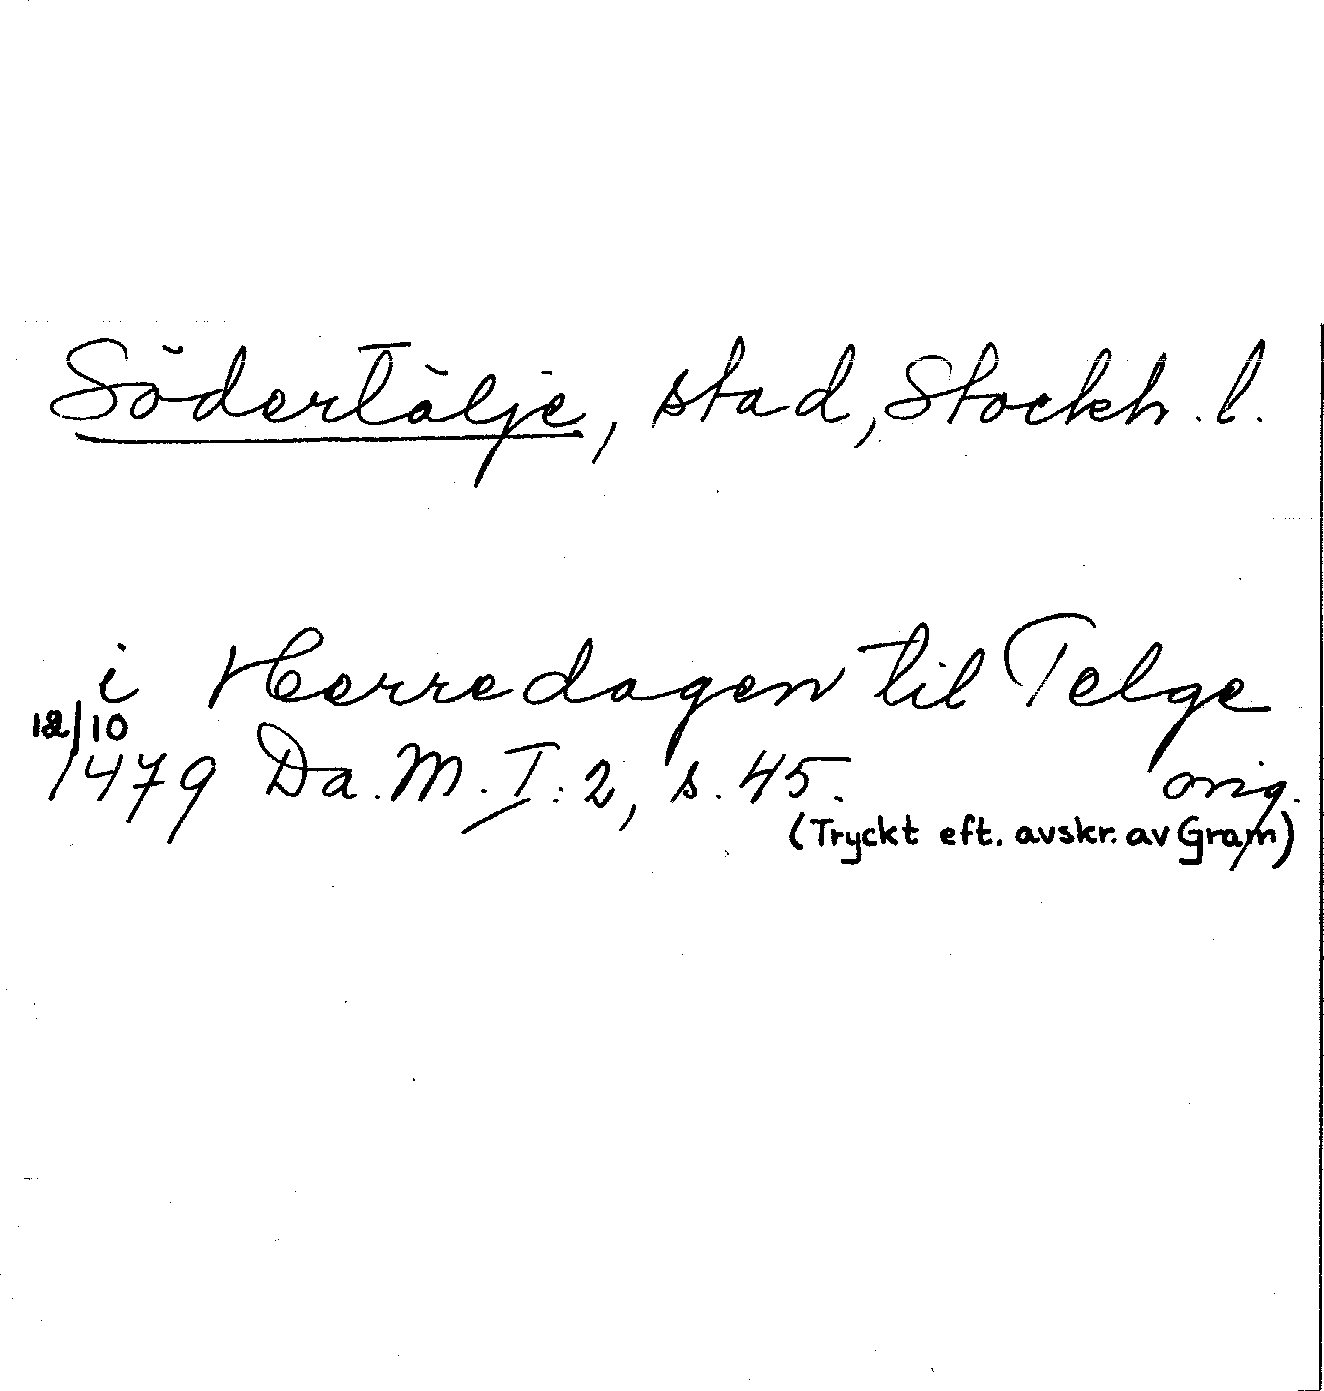 Södertälje, stad, Stockh. l.
i Herredagen til Telge
12/10
1479 Da. M. I: 2, s. 45. orig.
(Tryckt eft. avskr. av Gram)